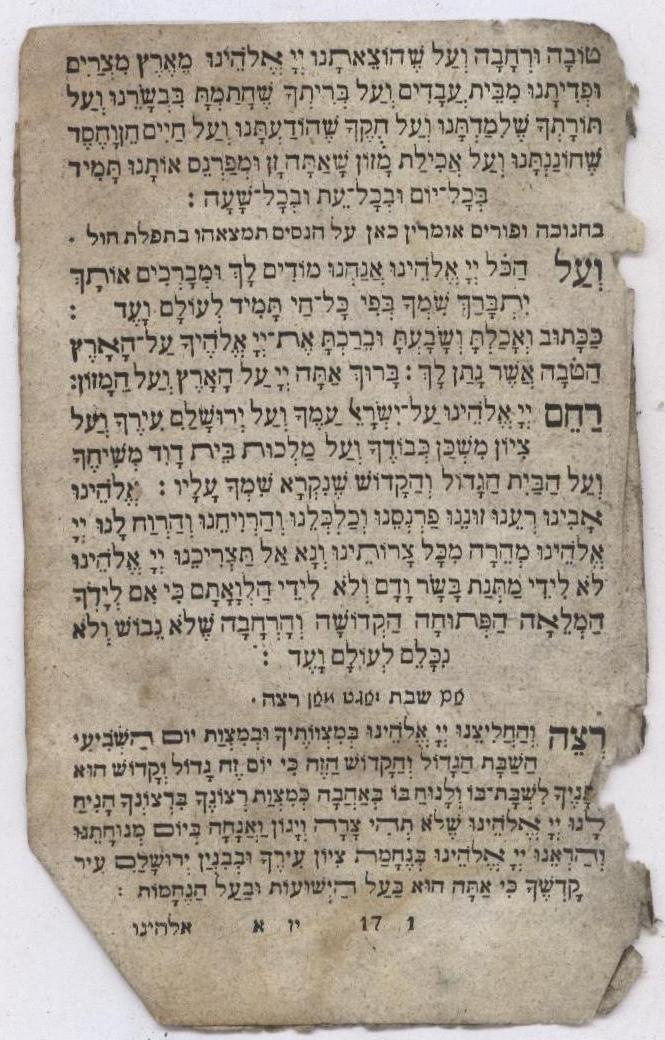 טוֹבָה וּרְחָבָה וְעַל שֶׁהוֹצֵאתָנוּ יְיָ אֱלֹהֵינוּ מֵאֶרֶץ מִצְרַיִם
וּפְדִיתָנוּ מִבֵּית עֲבָדִים וְעַל בְּרִיתְךָ שֶׁחָתַמְתָּ בִּבְשָׂרֵנוּ וְעַל
תּוֹרָתְךָ שֶׁלִמַדְתָּנוּ וְעַל חֻקֶיךָ שֶׁהוֹדַעְתָּנוּ וְעַל חַיִים חֵן וָחֶסֶד
שֶׁחוֹנַנְתָּנוּ וְעַל אֲכִילַת מָזוֹן שָׁאַתָּה זָן וּמְפַרְנֵס אוֹתָנוּ תָּמִיד
בְּכָל־יוֹם וּבְכָל־עֵת וּבְכָל־שָׁעָה :
בחנוכה ופורים אומרין כאן על הנסים תמצאהו בתפלת חול .
וְעַל הַכֹּל יְיָ אֱלֹהֵינוּ אֲנַחְנוּ מוֹדִים לָךְ וּמְבָרְכִים אוֹתָךְ
יִתְבָּרַךְ שִׁמְךָ בְּפִי כָּל־חַי תָּמִיד לְעוֹלָם וָעֶד :
כַּכָּתוּב וְאָכַלְתָּ וְשָׂבָעְתָּ וּבֵרַכְתָּ אֶת־יְיָ אֱלֹהֶיךָ עַל־הָאָרֶץ
הַטֹּבָה אֲשֶׁר נָתַן לָךְ : בָּרוּךְ אַתָּה יְיָ עַל הָאָרֶץ וְעַל הַמָּזוֹן:
רַחֵם יְיָ אֱלֹהֵינוּ עַל־יִשְׂרָאֵל עַמֶּךָ וְעַל יְרוּשָׁלַםִ עִירֶךָ וְעַל
צִיּוֹן מִשְׁכַּן כְּבוֹדֶךָ וְעַל מַלְכוּת בֵּית דָּוִד מְשִׁיחֶךָ
וְעַל הַבַּיִת הַגָּדוֹל וְהַקָּדוֹשׁ שֶׁנִּקְרָא שִׁמְךָ עָלָיו : אֱלֹהֵינוּ
אָבִינוּ רְעֵנוּ זוּנֵנוּ פַּרְנְסֵנוּ וְכַלְכְּלֵנוּ וְהַרְוִיחֵנוּ וְהַרְוַח לָנוּ יְיָ
אֱלֹהֵינוּ מְהֵרָה מִכָּל צָרוֹתֵינוּ וְנָא אַל תַּצְרִיכֵנוּ יְיָ אֱלֹהֵינוּ
לֹא לִידֵי מַתְּנַת בָּשָׂר וָדָם וְלֹא לִידֵי הַלְוָאָתָם כִּי אִם לְיָדְךָ
הַמְּלֵאָה הַפְּתוּחָה הַקְּדוֹשָׁה וְהָרְחָבָה שֶׁלֹּא נֵבוֹשׁ וְלֹא
נִכָּלֵם לְעוֹלָם וָעֶד :
שבת רצה .
רְצֵה וְהַחֲלִיצֵנוּ יְיָ אֱלֹהֵינוּ בְּמִצְוֹתֶיךָ וּבְמִצְוַת יוֹם הַשְּׁבִיעִי
הַשַּׁבָּת הַגָּדוֹל וְהַקָּדוֹשׁ הַזֶּה כִּי יוֹם זֶה גָּדוֹל וְקָדוֹשׁ הוּא
לְפָנֶיךָ לִשְׁבָּת־בּוֹ וְלָנוּחַ בּוֹ בְּאַהֲבָה כְּמִצְוַת רְצוֹנֶךָ בִּרְצוֹנְךָ הָנִיחַ
לָנוּ יְיָ אֱלֹהֵינוּ שֶׁלֹּא תְהִי צָרָה וְיָגוֹן וַאֲנָחָה בְּיוֹם מְנוּחָתֵנוּ
וְהַרְאֵנוּ יְיָ אֱלֹהֵינוּ בְּנֶחָמַת צִיּוֹן עִירֶךָ וּבְבִנְיַן יְרוּשָׁלַםִ עִיר
קָדְשֶׁךָ כִּי אַתָּה הוּא בַּעַל הַיְשׁוּעוֹת וּבַעַל הַנֶּחָמוֹת :
1 17 יו א אלהינו